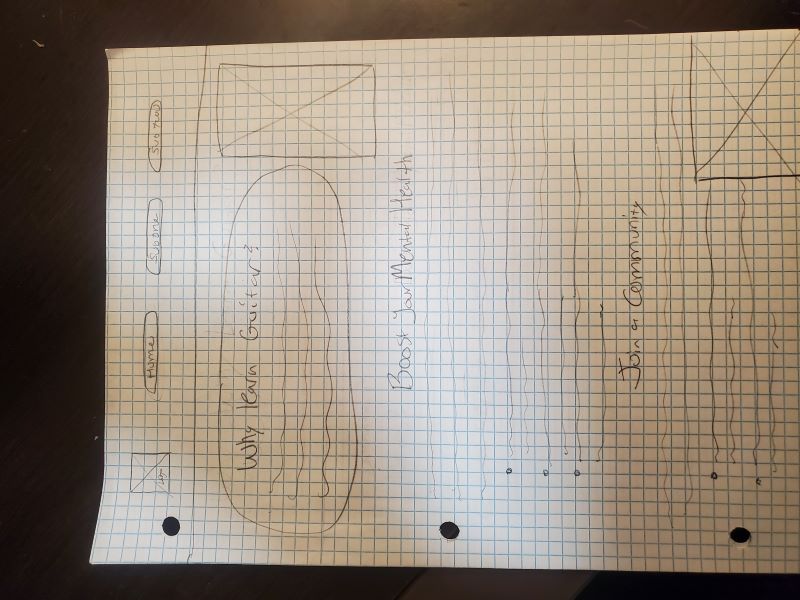 Home
Subone
Subtwo
Why learn Guitar?
Boost Your Mental Health
Join a Community